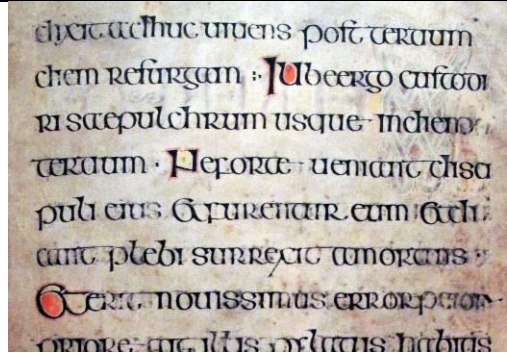 dixit adhuc uiuens post tertium
diem resurgam : Iube ergo custodi
ri saepulchrum usque in diem
tertium · Ne forte ueniant disci
puli eius Et furentur eum Et di
cant plebi surrexit a mortuis
Et erit nouissimus error peior
priore ait illis pilatus habitis